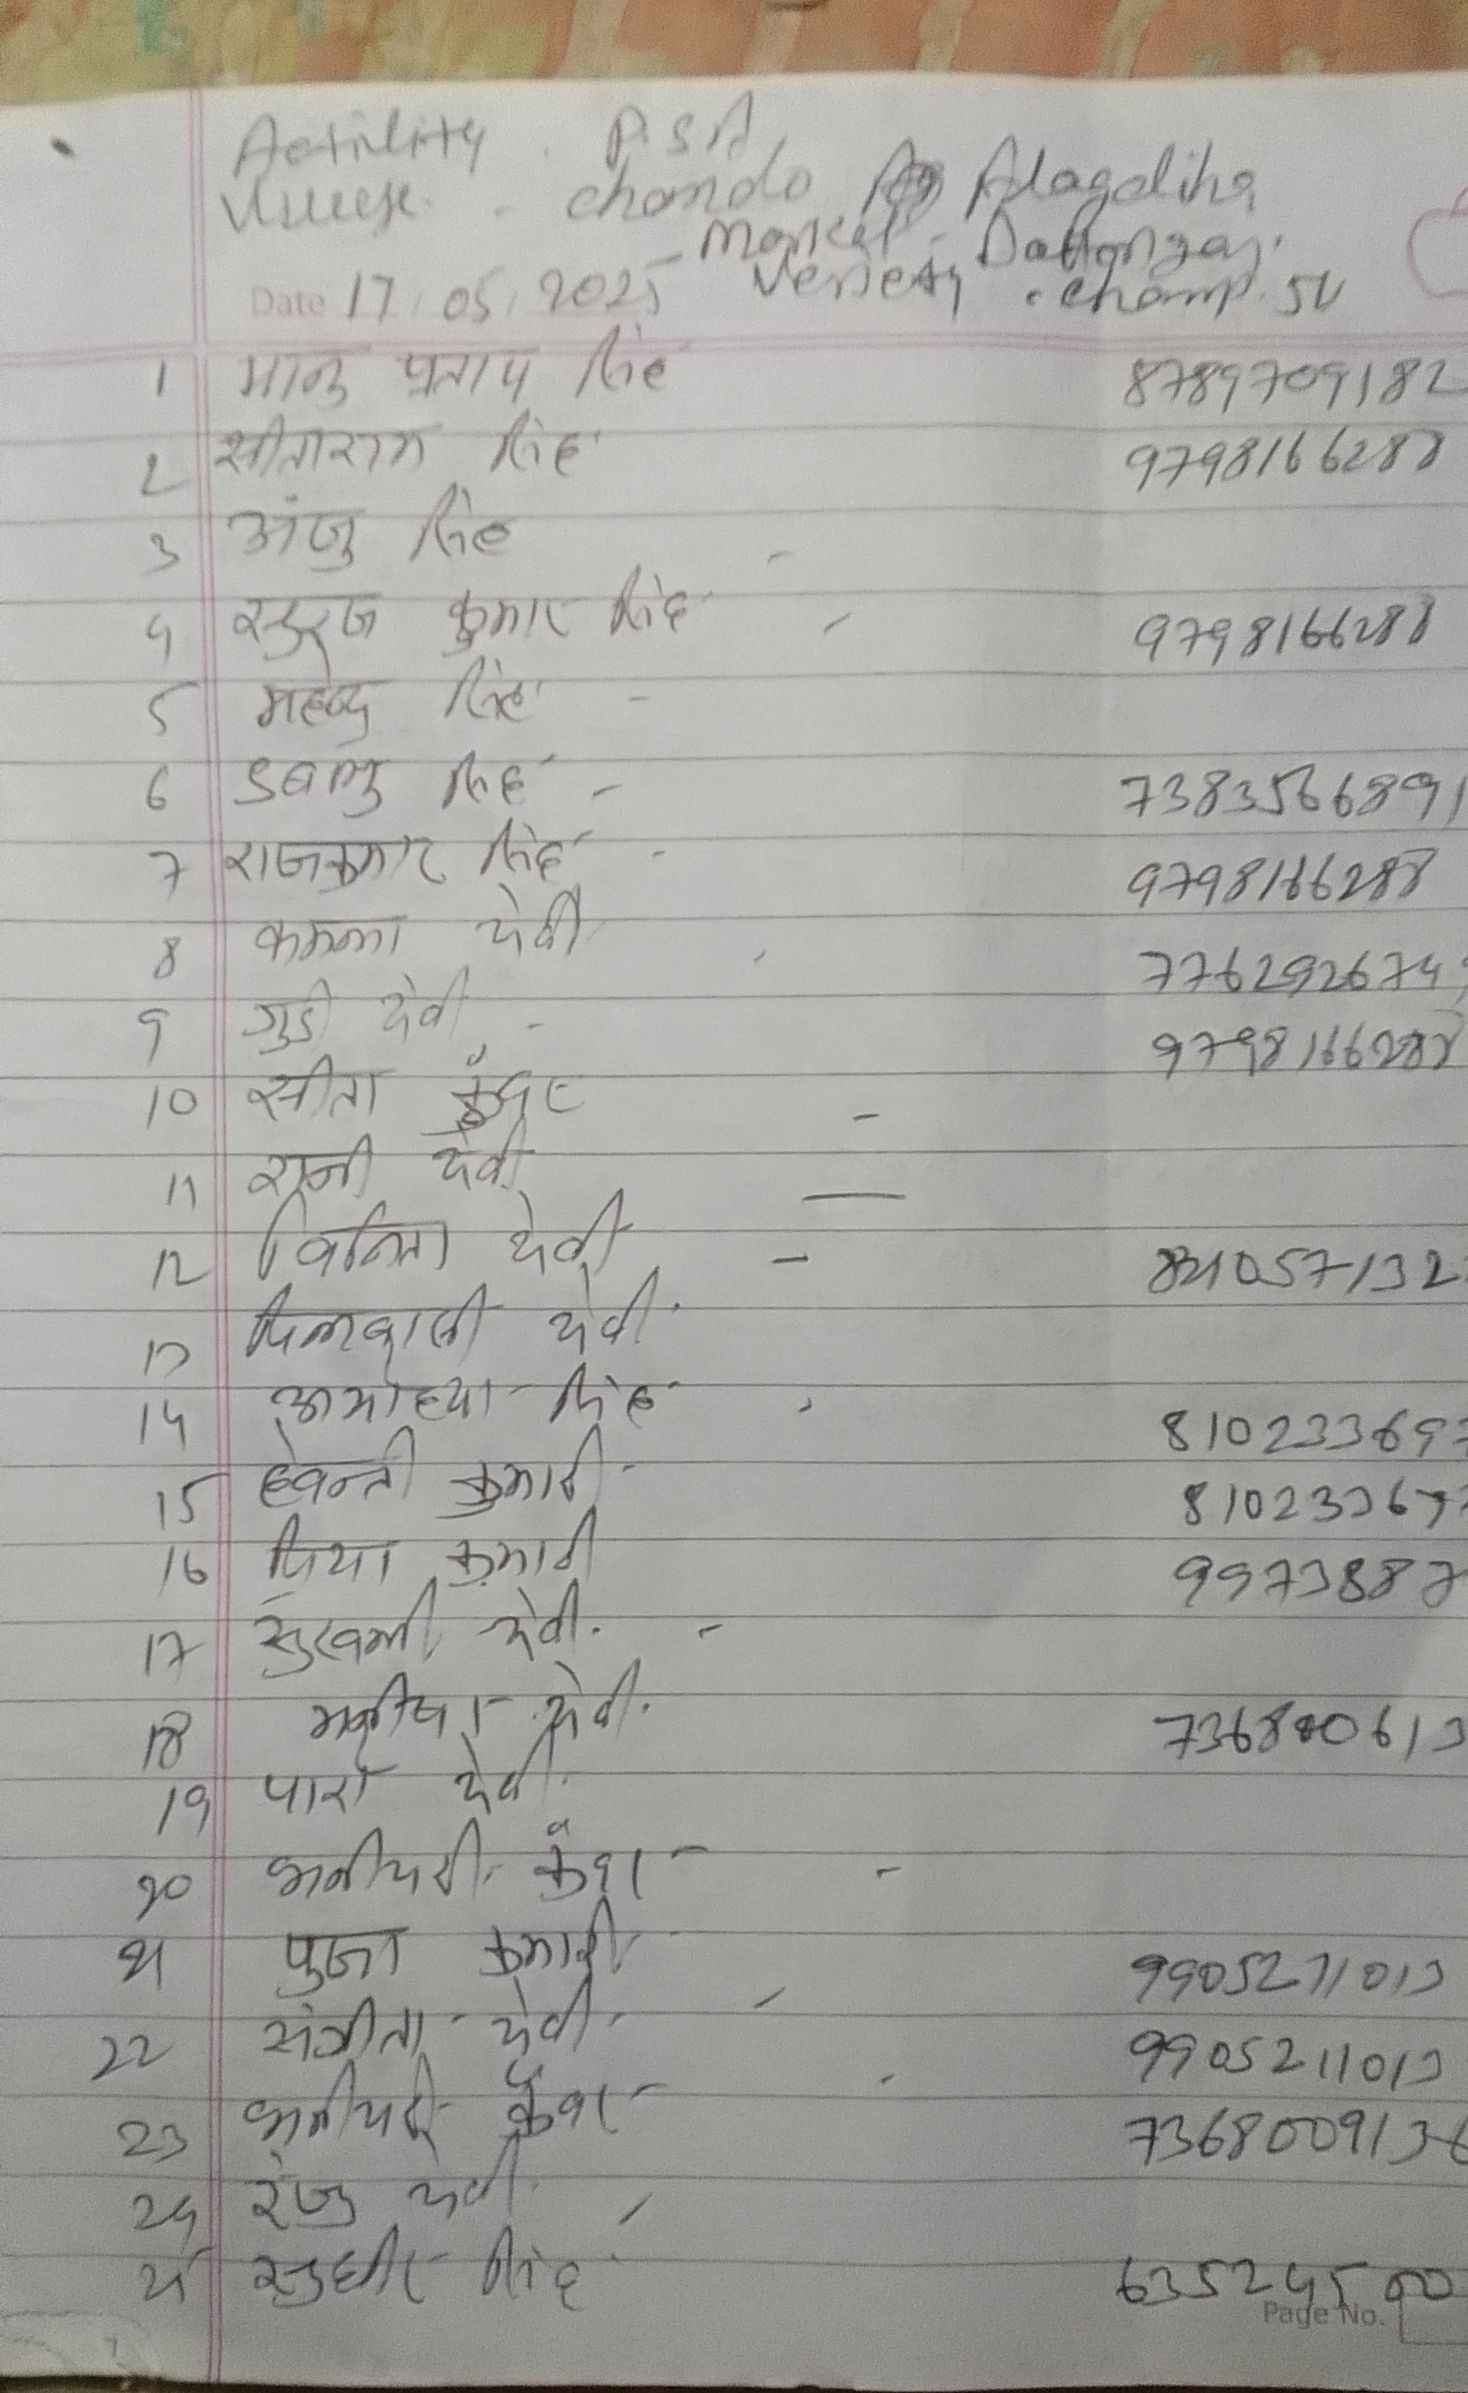 Activity . P.S.A
Village. - Chando Alagdiha
Market - Daltonganj.
Date 17/05/2025 Veriety . Champ. SV
1 भानु प्रताप सिंह 8789709182
2 सीताराम सिंह 9798166288
3 अंजु सिंह -
4 सुरज कुमार सिंह - 9798166288
5 महेन्द्र सिंह -
6 सिंह - 7383566891
7 राजकुमार सिंह - 9798166288
8 देवी 776292674
9 गुडी देवी - 9798166288
10 सीता कुँवर -
11 रानी देवी —
12 विनिता देवी - 831057132
13 देवी
14 अयोध्या सिंह 810233697
15 हेवन्ती कुमारी 810233697
16 प्रिया कुमारी 9973887
17 देवी. -
18 देवी. 736800613
19 पारो देवी.
20 कुँवर -
21 पुजा कुमारी 9905211013
22 संगीता देवी - 9905211013
23 कुँवर - 7368009136
24 रेंजु देवी
25 सुधीर सिंह 63524500
Page No.